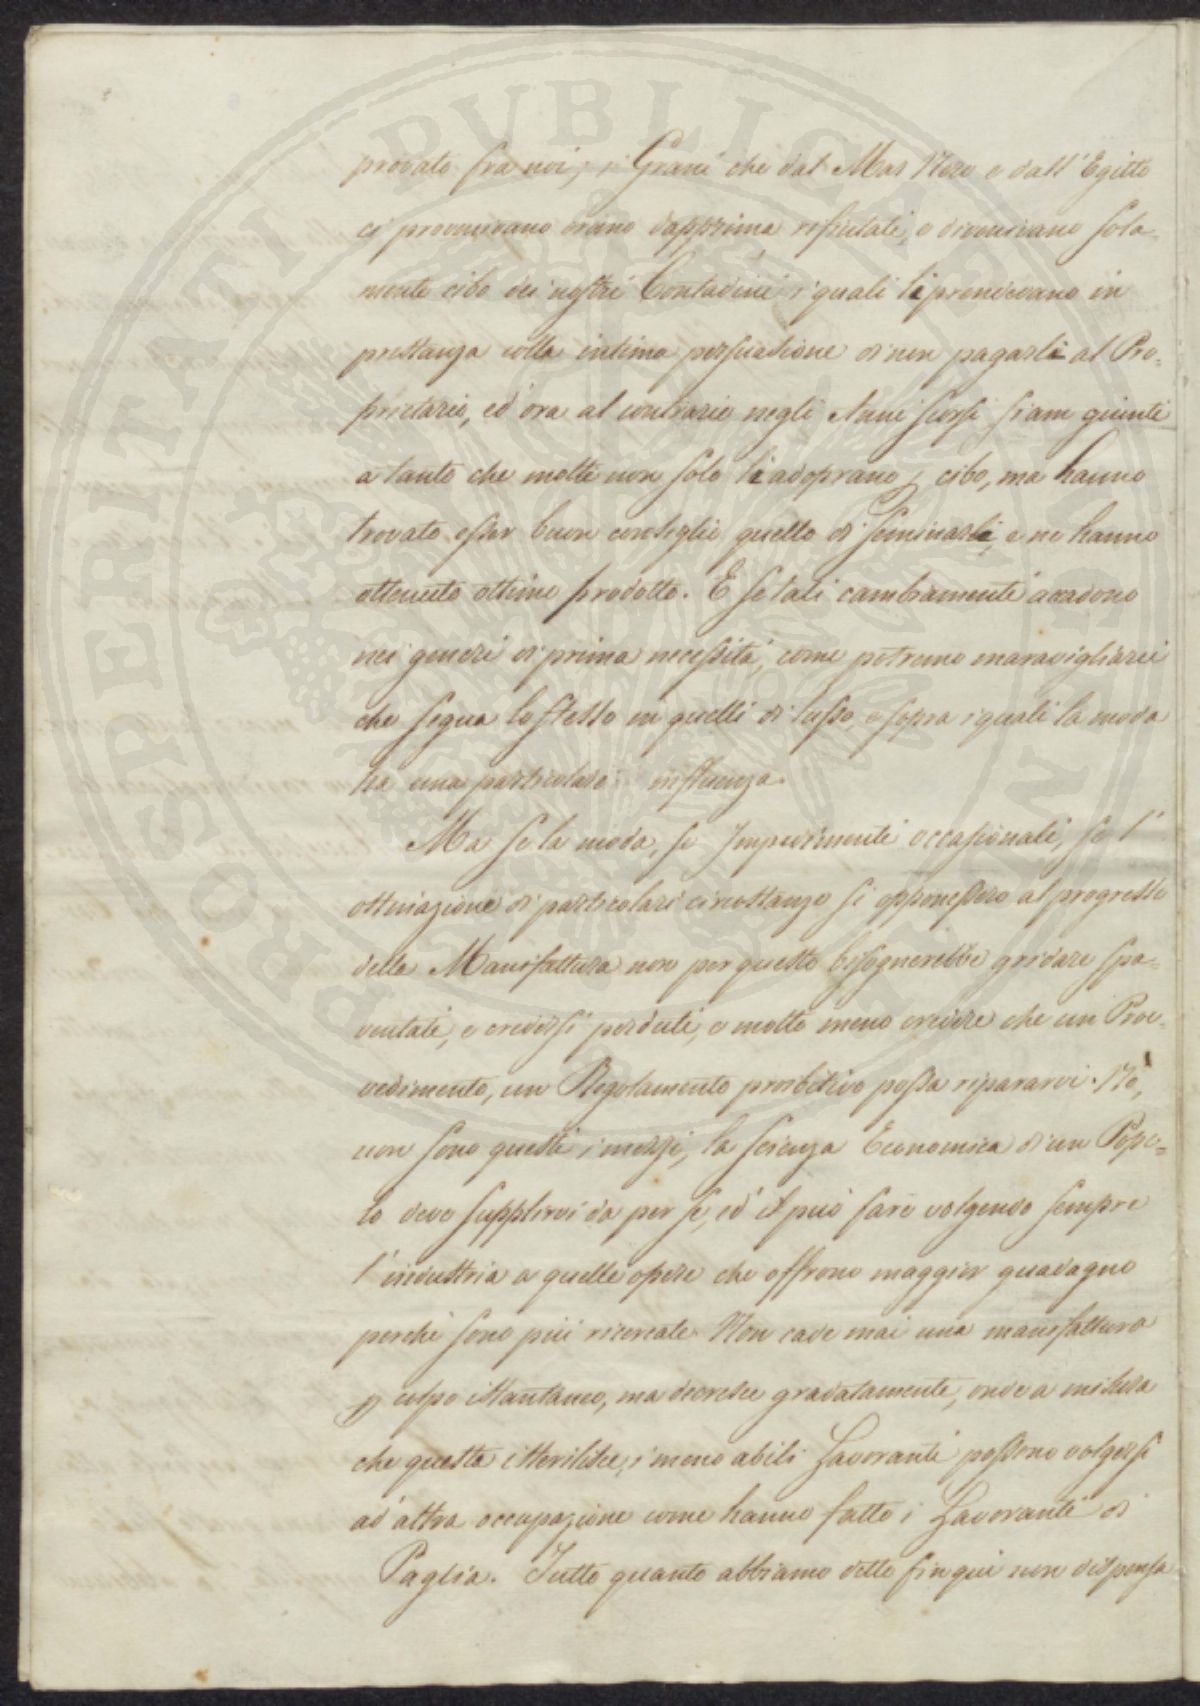 PROSPERITATI PUBLICAE AUGENDAE
provato fra noi; i Grani che dal Mar Nero e dall'Egitto
ci provenivano erano dapprima rifiutati, e divenivano sola-
mente cibo dei nostri Contadini i quali li prendevano in
prestanza colla intima persuasione di non pagarli al Pro-
prietario, ed ora al contrario negli Anni scorsi siam giunti
a tanto che molti non solo li adoprano p cibo, ma hanno
trovato esser buon consiglio quello di seminarli, e ne hanno
ottenuto ottimo prodotto. E se tali cambiamenti accadono
nei generi di prima necessità, come potremo maravigliarci
che segua lo stesso in quelli di lusso, e sopra i quali la moda
ha una particolare influenza.
Ma se la moda, se Impedimenti occasionali, se l'
ostinazione di particolari circostanze si opponessero al progresso
della Manifattura non per questo bisognerebbe gridare spa-
ventati, e credersi perduti, e molto meno credere che un Prov-
vedimento, un Regolamento proibitivo possa ripararvi. Nò,
non sono questi i mezzi, la scienza Economica di un Popo-
lo deve supplirvi da per se, ed il può fare volgendo sempre
l'industria a quelle opere che offrono maggior guadagno
perchè sono più ricercate. Non cade mai una manifattura
p colpo istantaneo, ma decresce gradatamente, onde a misura
che questa isterilisce, i meno abili Lavoranti possono volgersi
ad altra occupazione come hanno fatto i Lavoranti di
Paglia. Tutto quanto abbiamo detto fin qui non dispensa